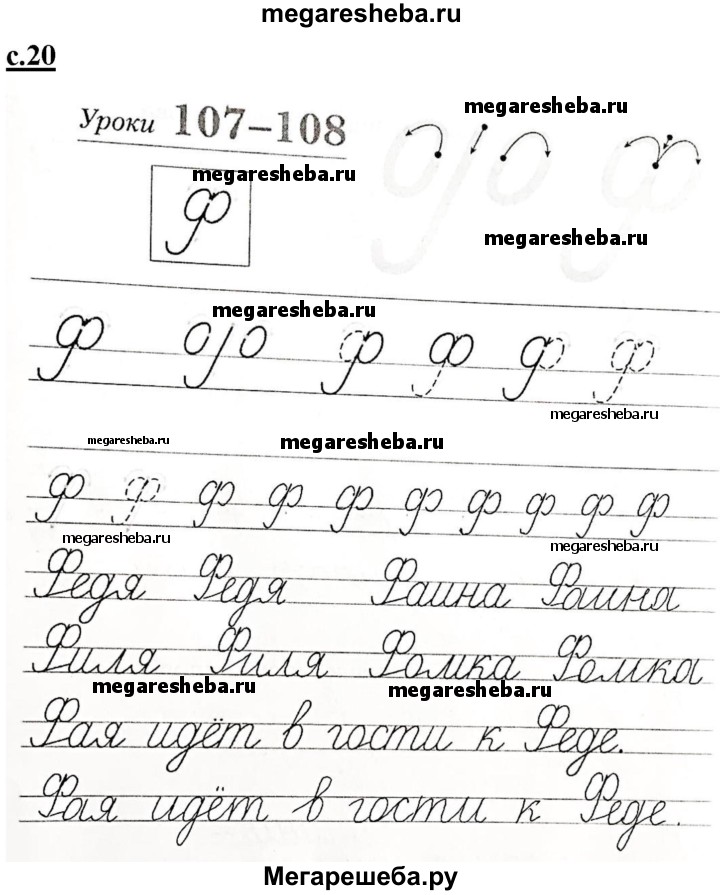 megaresheba.ru
с.20
Уроки 107–108
megaresheba.ru
megaresheba.ru
Ф
megaresheba.ru
megaresheba.ru
Ф Ф Ф Ф Ф Ф
megaresheba.ru
megaresheba.ru megaresheba.ru
Ф Ф Ф Ф Ф Ф Ф Ф Ф Ф
megaresheba.ru megaresheba.ru
Федя Федя Фаина Фаина
Филя Филя Фомка Фомка
megaresheba.ru megaresheba.ru
Фая идёт в гости к Феде.
Фая идёт в гости к Феде.
Мегарешеба.ру